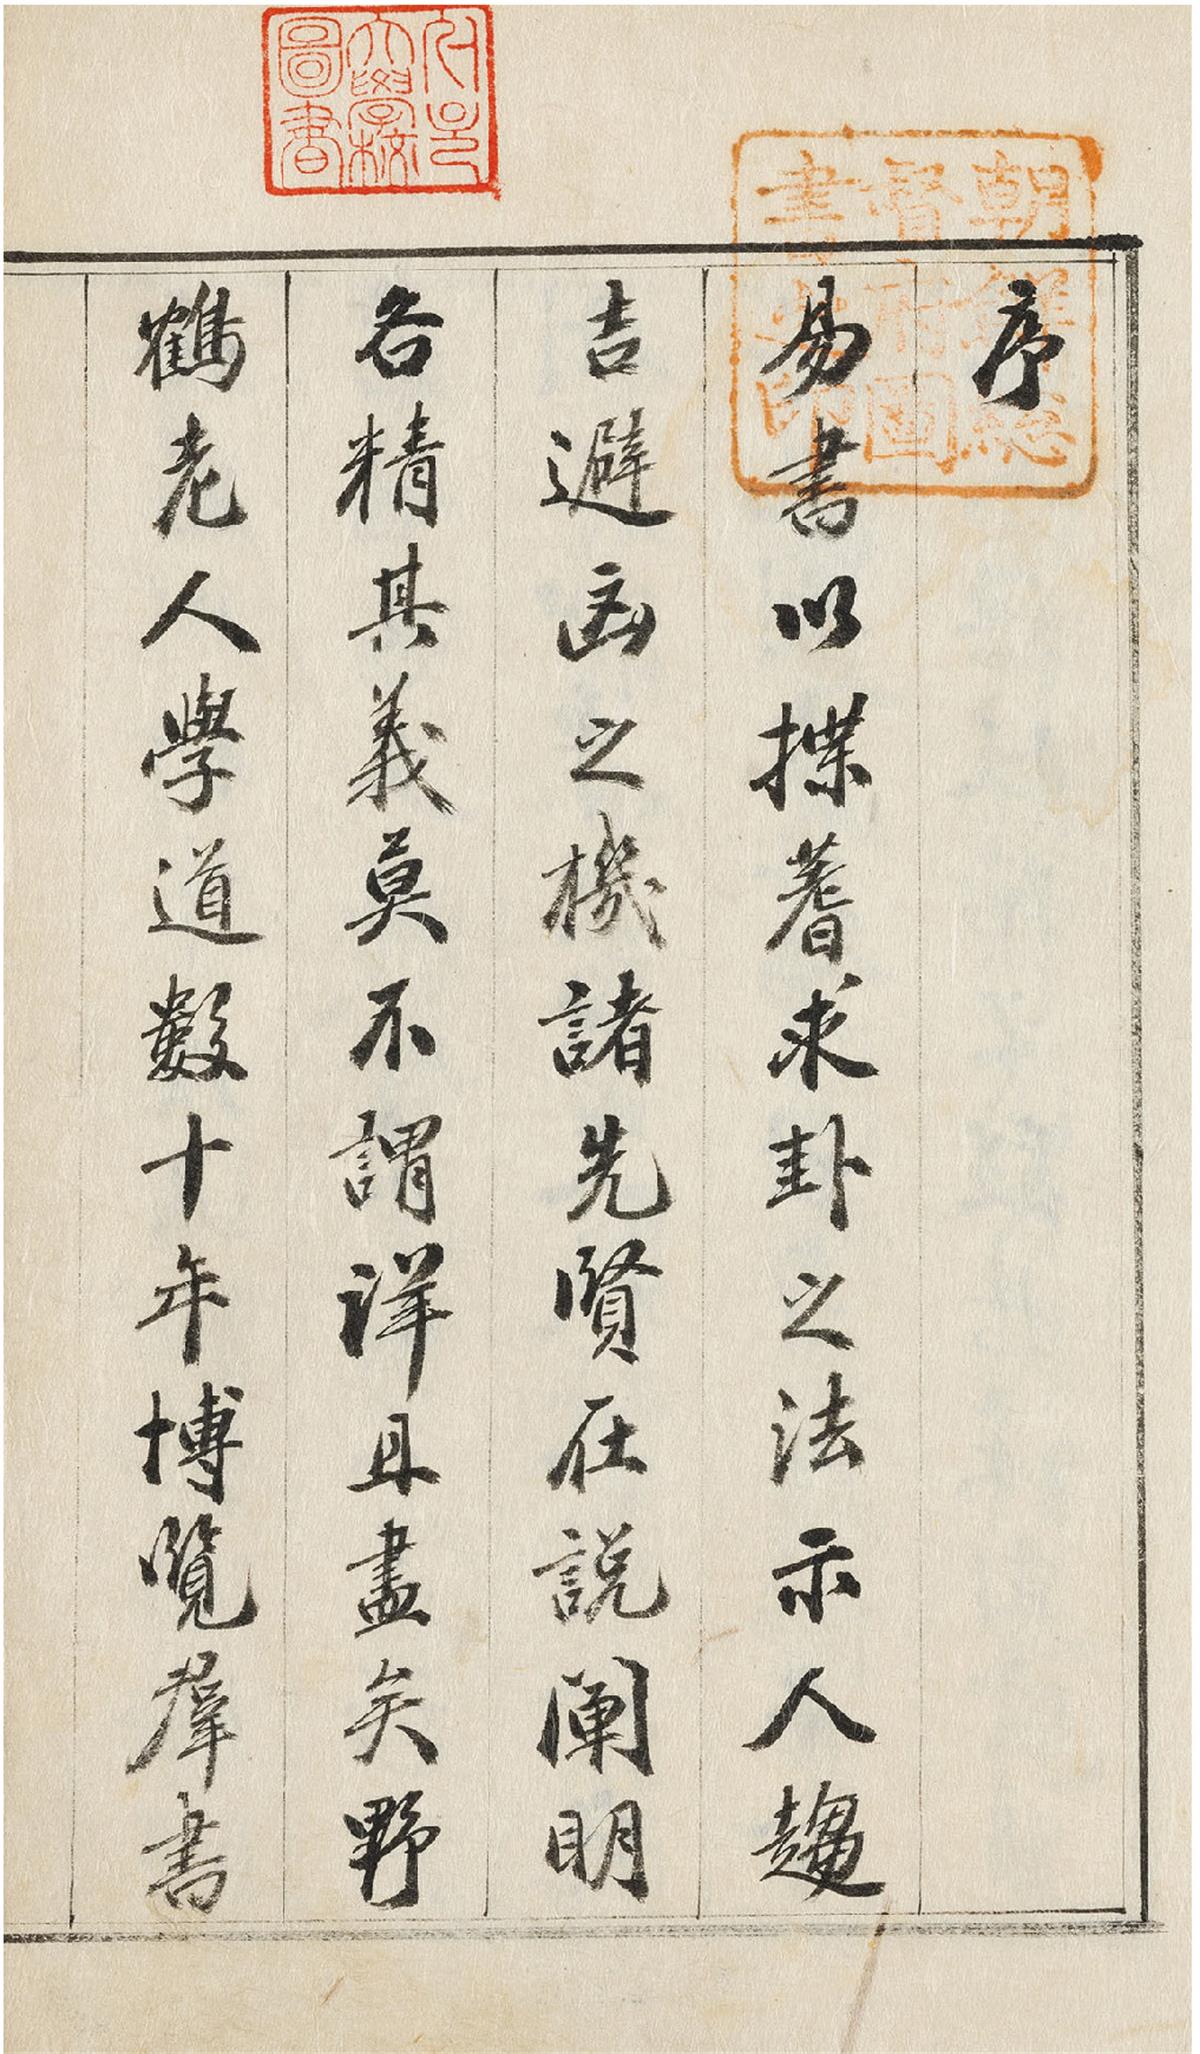 序
易書以揲蓍求卦之法示人趨
吉避凶之機諸先賢在說闡明
各精其義莫不謂詳且盡矣野
鶴老人學道數十年博覽羣書
朝鮮總
督府圖
書之印
大學校
圖書